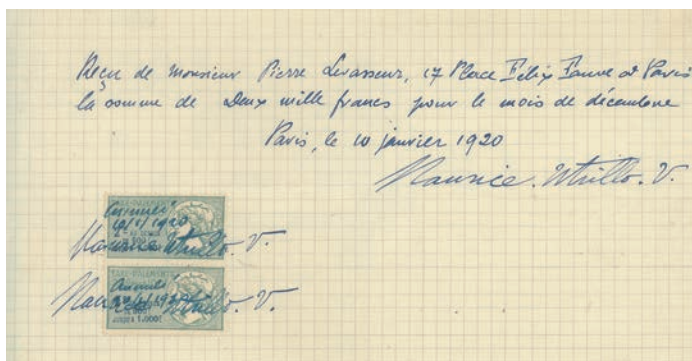 Reçu de monsieur Pierre Levasseur, 17 Place Félix Faure à Paris
la somme de deux mille francs pour le mois de décembre
Paris, le 10 janvier 1920
Maurice. Utrillo. V.
TAXE-PAIEMENT
Annulé
10/1/1920
Maurice Utrillo. V.
TAXE-PAIEMENT
Annulé
10/1/1920
Maurice Utrillo. V.
JUSQU'A 1.000F